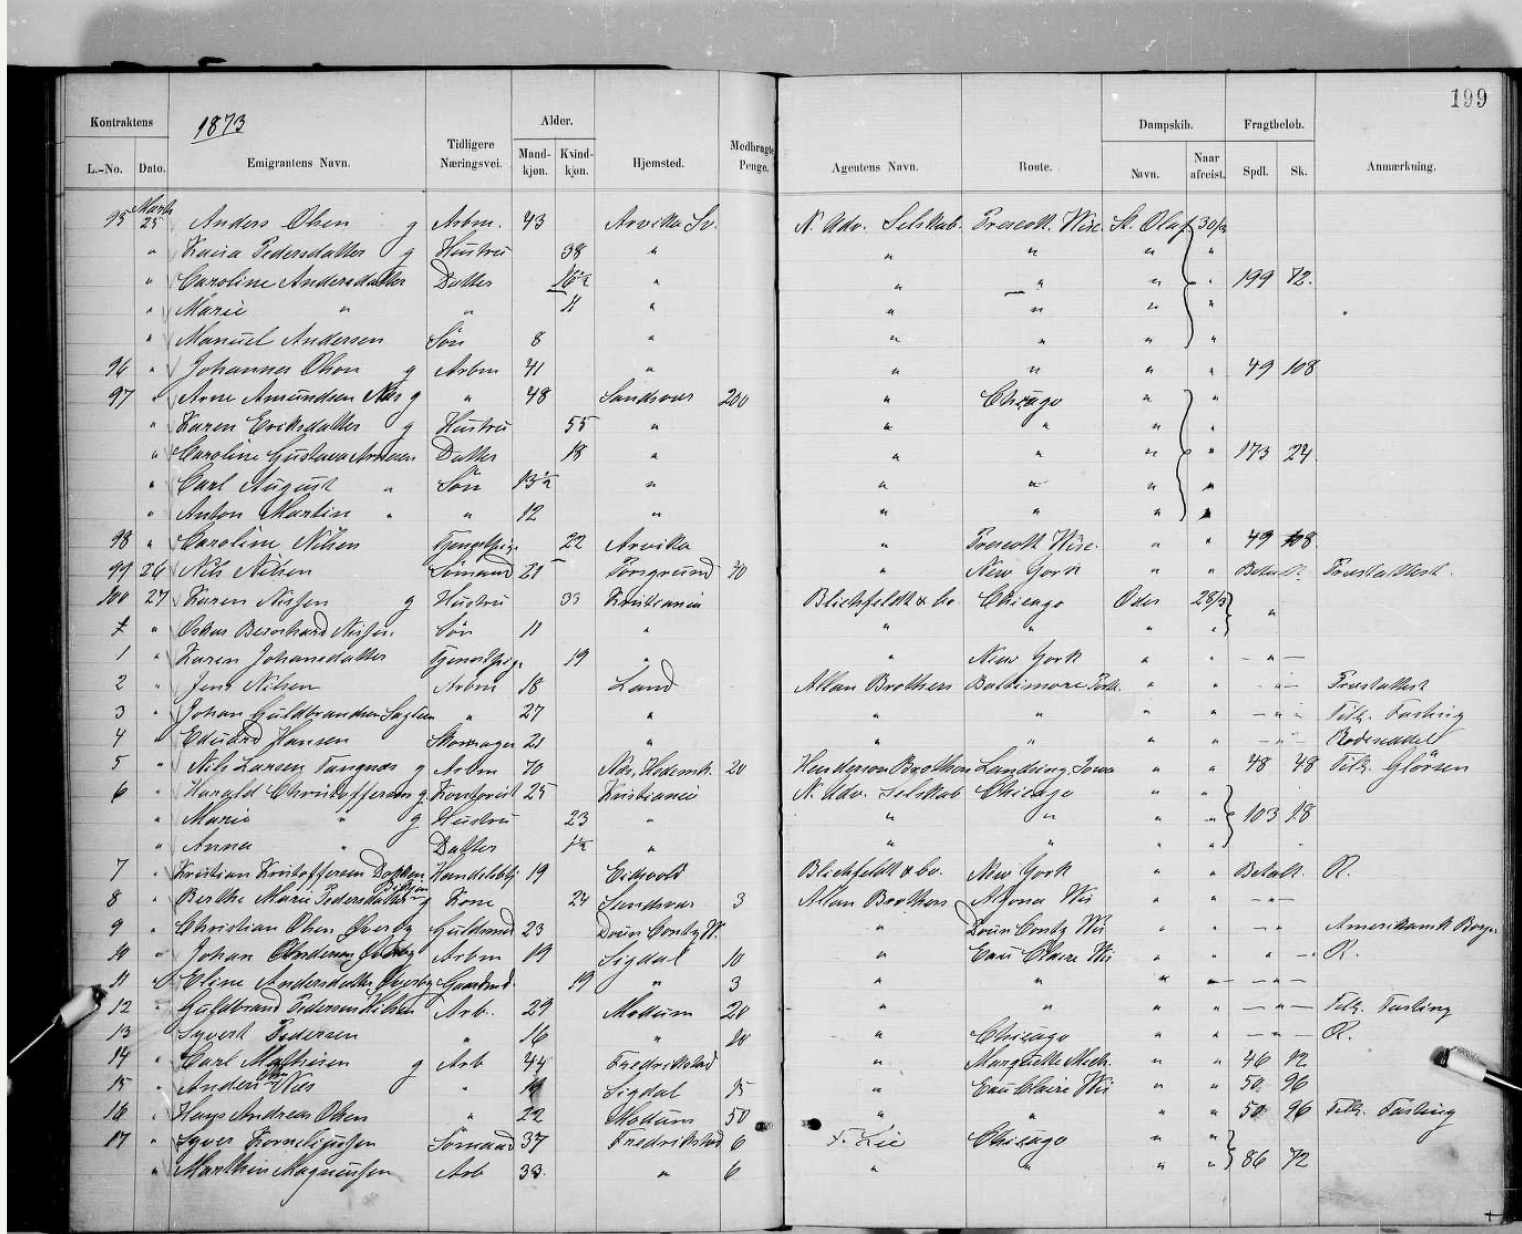 199
Kontraktens 1873 Tidligere Næringsvei. Alder. Hjemsted. Medbragte Penge. Agentens Navn. Route. Dampskib. Fragtbeløb. Anmærkning.
L.-No. Dato. Emigrantens Navn. Mand-kjøn. Kvind-kjøn. Navn. Naar afreist. Spdl. Sk.
95 Marts 25 Anders Olsen g Arbm. 43 Arvika Sv. N. Adv. Selskab. Prescott Wisc. St. Olaf 30/3
" Kaisa Pedersdatter g Hustru 38 " " " " "
" Caroline Andersdatter Datter " " " " " 199 72.
" Marie " " 11 " " " " "
" Manuel Andersen Sön 8 " " " " "
96 " Johannes Olson g Arbm 41 " " " " " 49 108
97 " Arne Amundsen Næs g " 48 Sandsvær 200 " Chicago " "
" Karen Eriksdatter g Hustru 55 " " " " "
" Caroline Gustava Arnesen Datter 18 " " " " " 173 24.
" Carl August " Sön 13½ " " " " "
" Anton Martin " " 12 " " " " "
98 " Caroline Nilsen Tjenestpige 22 Arvika " Prescott Wisc. " " 49 108
99 26 Nils Nilsen Sömand 21 Porsgrund 70 " New York " " Betalt. Præstattest.
100 27 Karen Nissen g Hustru 33 Kristiania Blichfeldt & Co Chicago Oder 28/3 "
" Oskar Bernhard Nissen Sön 11 " " " " "
1 " Karen Johansdatter Tjenestpige 19 " " New York " " — " —
2 " Jens Nilsen Arbm 18 Land Allan Brothers Baltimore " " — " — Præstattest
3 " Johan Guldbrandsen " 27 " " " " " — " — Tilh. Fasting
4 " Eduard Hansen Skomager 21 " " " " " — " — Rodeseddel
5 " Nils Larsen Tangnæs g Arbm 70 Næs, Hedemk. 20 Henderson Brothers Lansing Iowa " " 48 48 Tilh. Glörsen
6 " Harald Christoffersen g Kontorist 25 Kristiania N. Adv. Selskab Chicago " "
" Marie " g Hustru 23 " " " " " 103 18
" Anna " Datter 1½ " " " " "
7 " Kristian Kristoffersen Dokken Handelsbtj 19 Eidsvold Blichfeldt & Co. New York " " Betalt. R.
8 " Berthe Marie Pedersdatter g Kone 24 Sandsvær 3 Allan Brothers Algona Wis " " — " —
9 " Christian Olsen Øverby Guldsmed 23 Doun Conty W. " Doun Conty Wis " " — " Amerikansk Borger
10 " Johan Andersen Øverby Arbm 19 Sigdal 10 " Eau Claire Wis " " " — R.
11 " Eline Andersdatter Øverby Gaardmd. 19 " 3 " " " " — " —
12 " Guldbrand Pedersen Arb. 29 Modum 20 " " " " — " — Tilh. Fasting
13 " Syvert Pedersen " 16 " 20 " Chicago " " — " — R.
14 " Carl Mathiesen g Arb 44 Fredrikstad " Marquette Mich. " " 46 12
15 " Anders Næs " 19 Sigdal 15 " Eau Claire Wis " " 50 96
16 " Hans Andreas Olsen " 22 Modum 50 " " " " 50 96 Tilh. Fasting
17 " Syver Korneliussen Sömand 37 Fredrikstad 6 F. Lie Chicago " "
" Marthin Magnussen Arb 33. " 6 " " " " 86 72